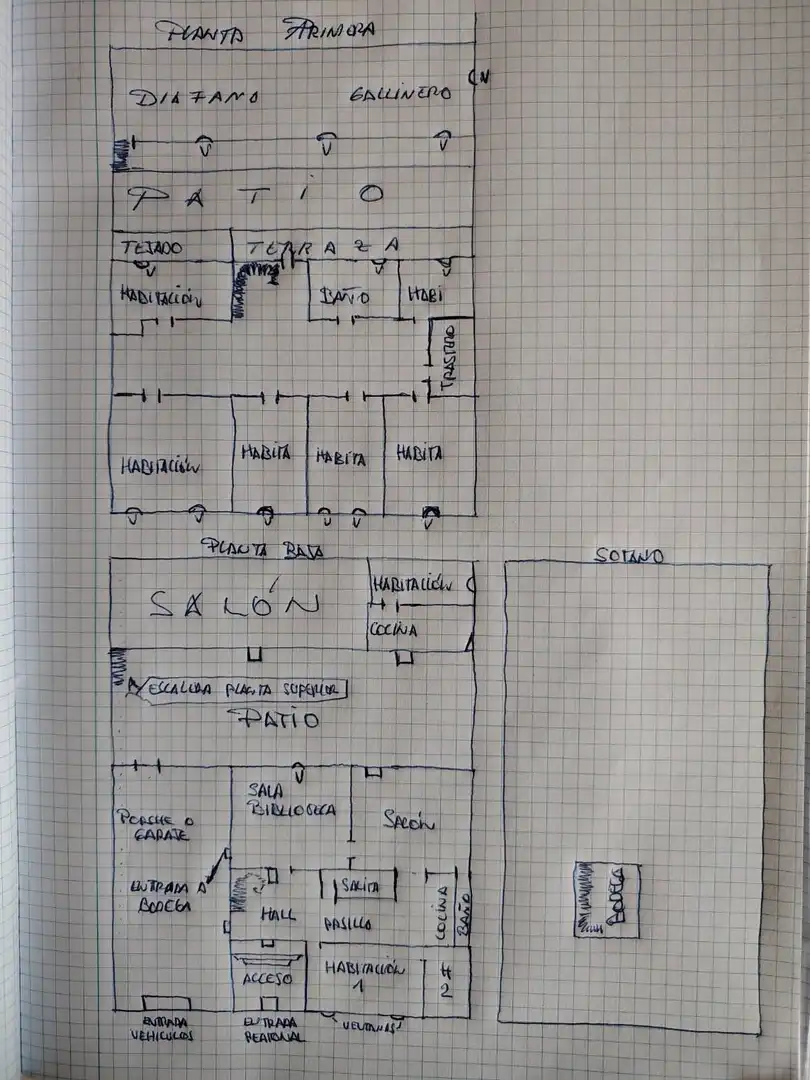 PLANTA PRIMERA
DIAFANO GALLINERO
V V V
PATIO
TEJADO TERRAZA
HABITACIÓN BAÑO HABI
TRASTERO
HABITACIÓN HABITA HABITA HABITA
V V V V V V
PLANTA BAJA
SALÓN
HABITACIÓN
COCINA
ESCALERA PLANTA SUPERIOR
PATIO
V
SALA
BIBLIOTECA
SALÓN
PORCHE O
GARAJE
ENTRADA A
BODEGA
SALITA
HALL
PASILLO
COCINA
BAÑO
ACCESO
HABITACIÓN
1
H
2
ENTRADA
VEHICULOS
ENTRADA
PEATONAL
VENTANAS
SOTANO
BODEGA